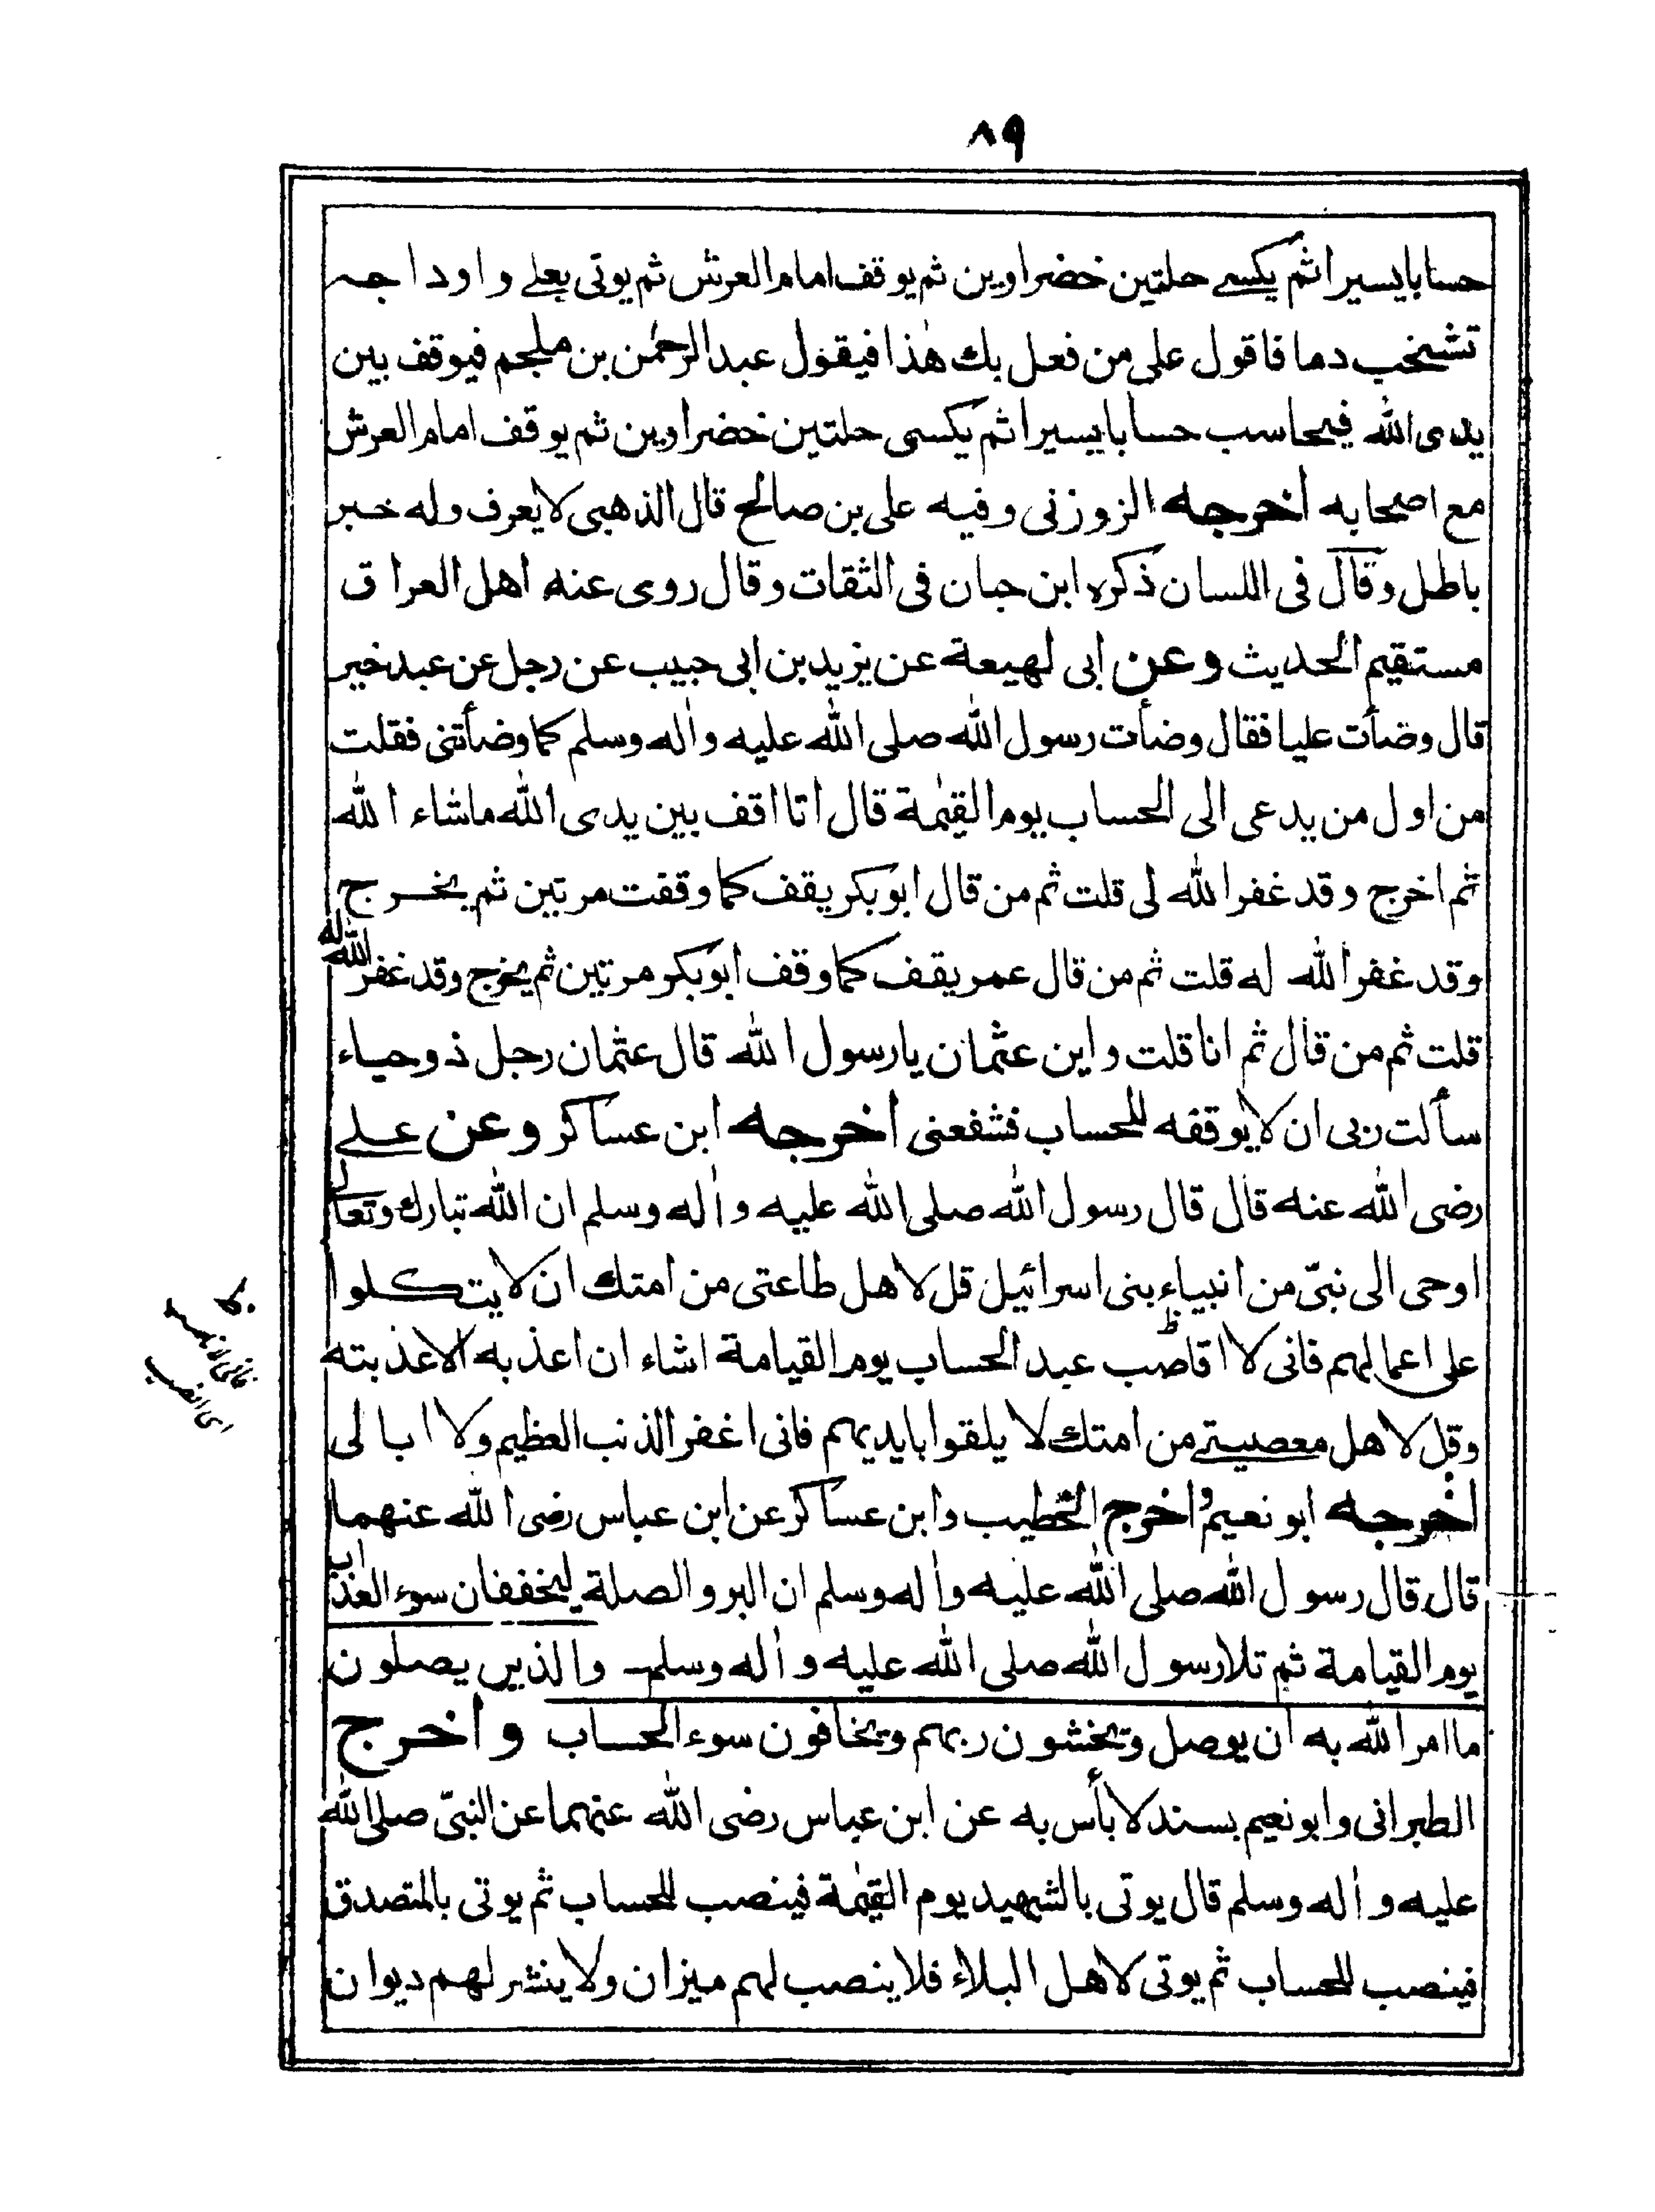 ٨٩
حسابا يسيرا ثم يكسے حلتين خضراوين ثم يوقف امام العرش ثم يوتى بعلے واوداجه
تشخب دما فاقول على من فعل بك هٰذا فيقول عبد الرحمٰن بن ملجم فيوقف بين
يدى الله فيحاسب حسابا يسيرا ثم يكسى حلتين خضراوين ثم يوقف امام العرش
مع اصحابه اخرجه الزوزنى وفيه على بن صالح قال الذهبى لا يعرف وله خبر
باطل وقال فى اللسان ذكره ابن حبان فى الثقات وقال روى عنه اهل العراق
مستقيم الحديث وعن ابى لهيعة عن يزيد بن ابى حبيب عن رجل عن عبد خير
قال وضأت عليا فقال وضأت رسول الله صلى الله عليه واٰله وسلم كما وضأتنى فقلت
من اول من يدعى الى الحساب يوم القيٰمة قال انا اقف بين يدى الله ماشاء الله
ثم اخرج وقد غفر الله لى قلت ثم من قال ابو بكر يقف كما وقفت مرتين ثم يخرج
وقد غفر الله له قلت ثم من قال عمر يقف كما وقف ابو بكر مرتين ثم يخرج وقد غفر الله له
قلت ثم من قال ثم انا قلت واين عثمان يا رسول الله قال عثمان رجل ذو حياء
سألت ربى ان لا يوقفه للحساب فشفعنى اخرجه ابن عساكر وعن علے
رضى الله عنه قال قال رسول الله صلى الله عليه واٰله وسلم ان الله تبارك وتعالى
اوحى الى نبىّ من انبياء بنى اسرائيل قل لاهل طاعتى من امتك ان لا يتكلوا
على اعمالهم فانى لا اقاصب عبد الحساب يوم القيامة اشاء ان اعذبه الا عذبته
وقل لاهل معصيتے من امتك لا يلقوا بايديهم فانى اغفر الذنب العظيم ولا ابالى
اخرجه ابو نعيم واخرج الخطيب وابن عساكر عن ابن عباس رضى الله عنهما
قال قال رسول الله صلى الله عليه واٰله وسلم ان البر والصلة ليخففان سوء العذاب
يوم القيامة ثم تلا رسول الله صلى الله عليه واٰله وسلم والذين يصلون
ما امر الله به ان يوصل ويخشون ربهم ويخافون سوء الحساب واخرج
الطبرانى وابو نعيم بسند لا بأس به عن ابن عباس رضى الله عنهما عن النبىّ صلى الله
عليه واٰله وسلم قال يوتى بالشهيد يوم القيٰمة فينصب للحساب ثم يوتى بالمتصدق
فينصب للحساب ثم يوتى لاهل البلاء فلا ينصب لهم ميزان ولا ينشر لهم ديوان